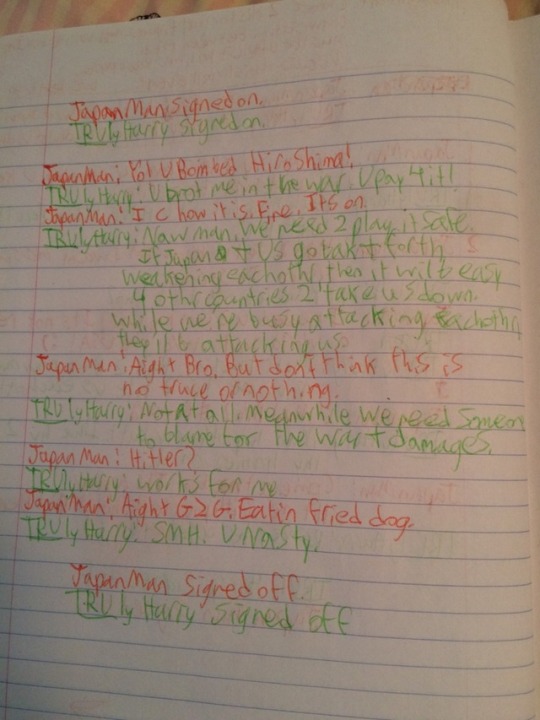 JapanMan Signed on.
TRUly Harry signed on.
JapanMan: Yo! U Bombed Hiroshima!
TRUly Harry: U brot me in the war. U pay 4 it!
JapanMan: I C how it is. Fine. It's on.
TRUly Harry: Naw man. We need 2 play it safe.
If Japan & US go bak + forth
weakening eachothr, then it will b easy
4 othr countries 2 take us down.
While we're busy attacking eachothr,
they'll b attacking us.
JapanMan: Aight Bro. But don't think this is
no truce or nothing.
TRUly Harry: Not at all. Meanwhile we need someone
to blame for the war + damages.
JapanMan: Hitler?
TRUly Harry: works for me
JapanMan: Aight G2G. Eatin fried dog.
TRUly Harry: SMH. U Nasty.
JapanMan Signed off.
TRUly Harry Signed off